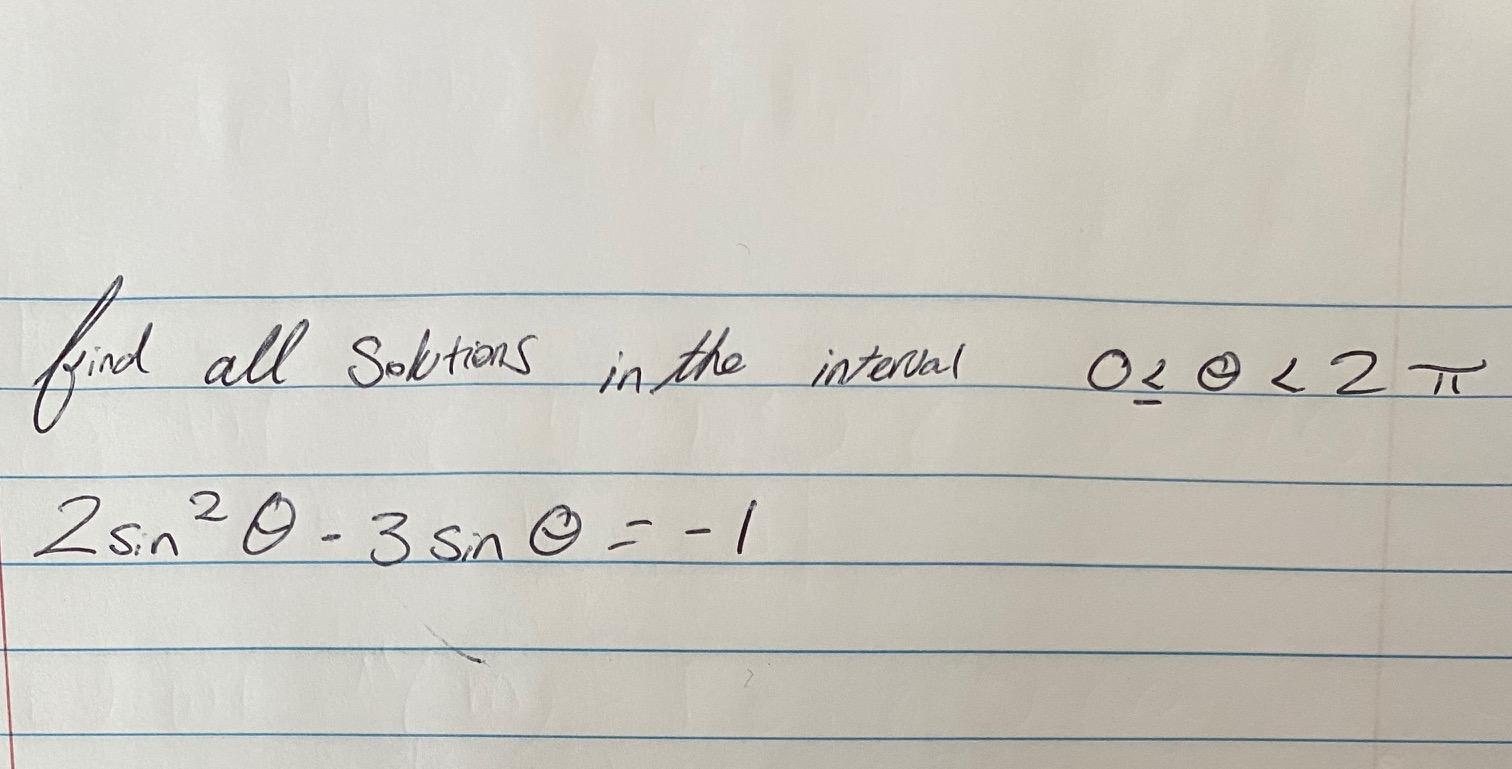 find all Solutions in the interval 0 ≤ θ < 2 π
2 sin² θ - 3 sin θ = -1